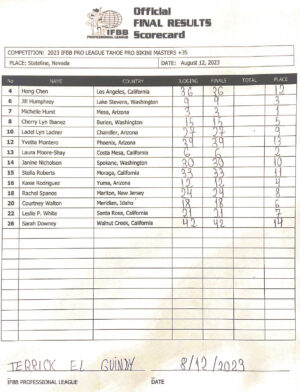 Official
FINAL RESULTS
Scorecard
IFBB
PROFESSIONAL LEAGUE
COMPETITION: 2023 IFBB PRO LEAGUE TAHOE PRO BIKINI MASTERS +35
PLACE: Stateline, Nevada DATE: August 12, 2023
No NAME COUNTRY JUDGING FINALS TOTAL PLACE
4 Hong Chen Los Angeles, California 36 36 12
6 Jill Humphrey Lake Stevens, Washington 9 9 3
7 Michelle Hurst Mesa, Arizona 3 3 1
8 Cherry Lyn Ibanez Burien, Washington 15 15 5
10 Ladel Lyn Ladner Chandler, Arizona 27 27 9
12 Yvette Montero Phoenix, Arizona 39 39 13
13 Laura Moore-Shay Costa Mesa, California 6 6 2
14 Janine Nicholson Spokane, Washington 30 30 10
15 Stella Roberts Moraga, California 33 33 11
16 Kasie Rodriguez Yuma, Arizona 12 12 4
18 Rachel Spanos Marlton, New Jersey 24 24 8
20 Courtney Walton Meridian, Idaho 18 18 6
22 Leslie P. White Santa Rosa, California 21 21 7
26 Sarah Downey Walnut Creek, California 42 42 14
TERRICK EL GUINDY 8/12/2023
IFBB PROFESSIONAL LEAGUE DATE